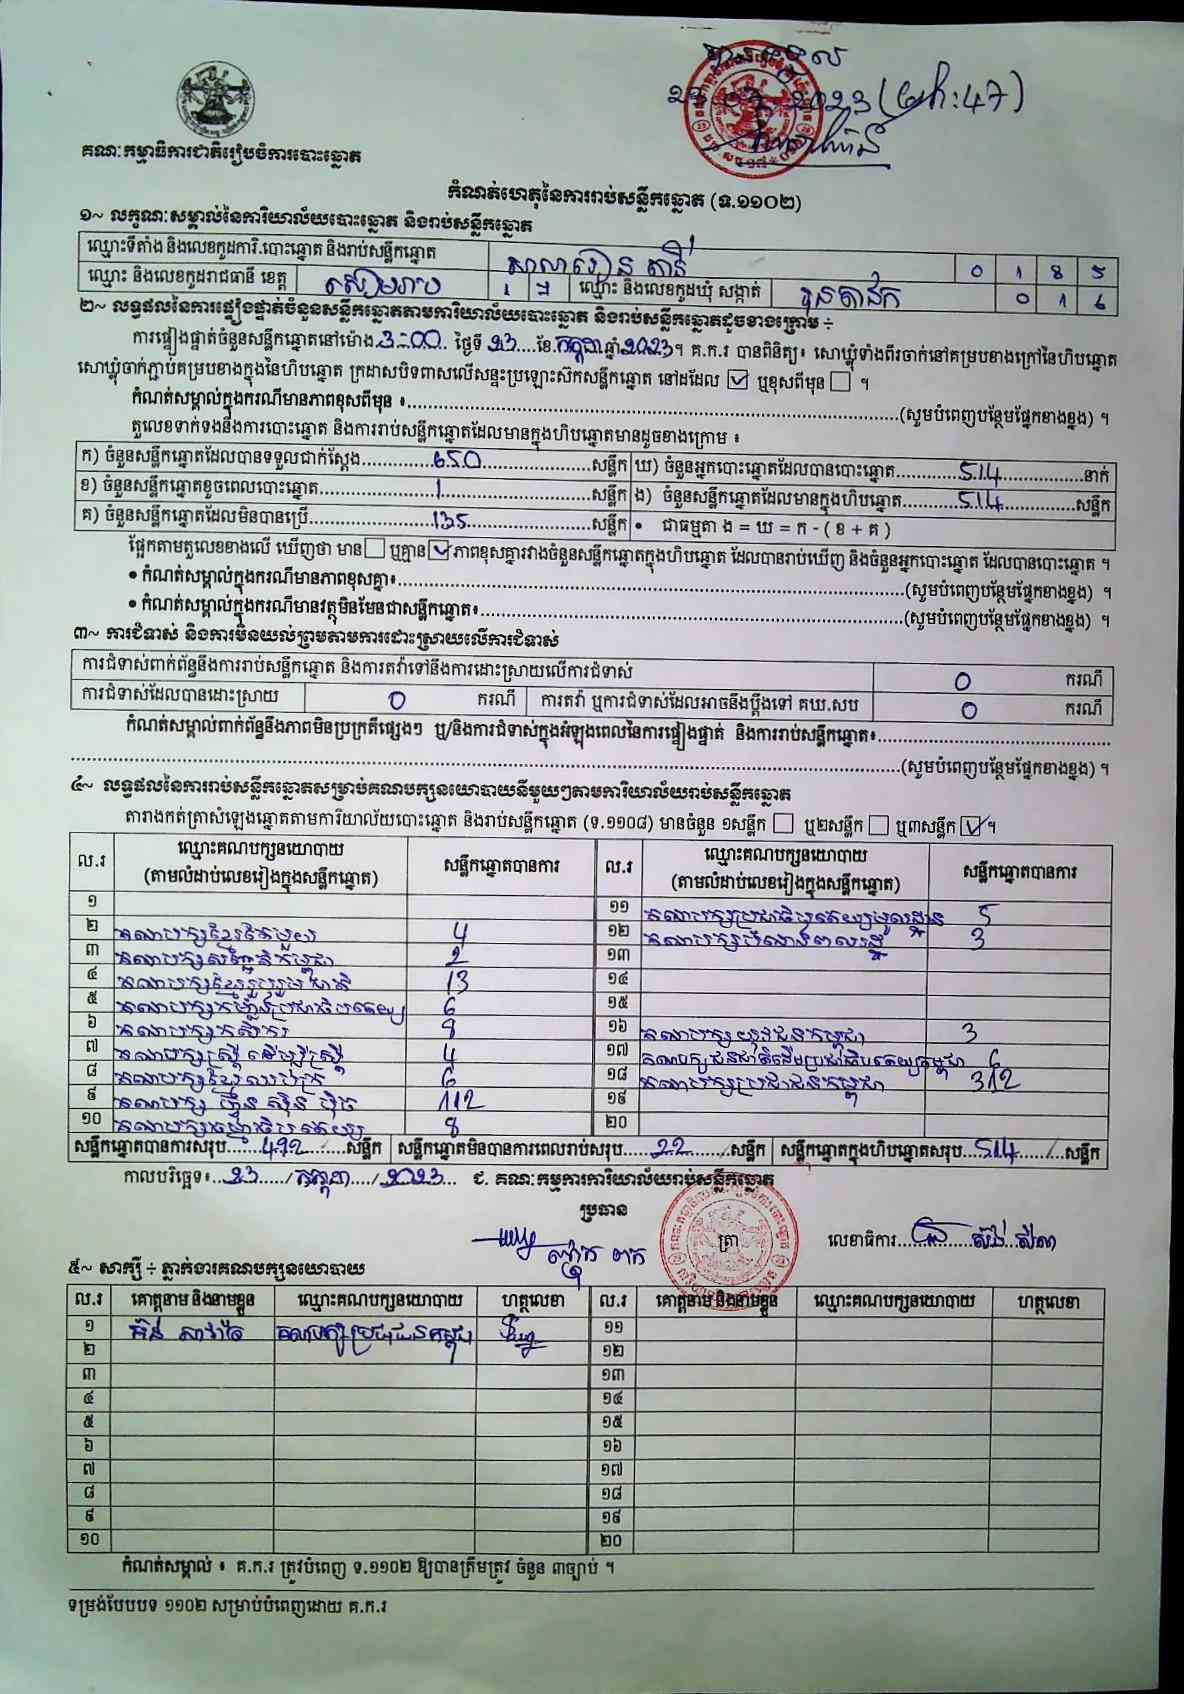 បានទទួល
23 07 2023 (ម៉ោ:47)
គណៈកម្មាធិការជាតិរៀបចំការបោះឆ្នោត
កំណត់ហេតុនៃការរាប់សន្លឹកឆ្នោត (ទ.១១០២)
១~ លក្ខណៈសម្គាល់នៃការិយាល័យបោះឆ្នោត និងរាប់សន្លឹកឆ្នោត
ឈ្មោះទីតាំង និងលេខកូដការិ.បោះឆ្នោត និងរាប់សន្លឹកឆ្នោត សាលារៀន តានី 0 1 8 5
ឈ្មោះ និងលេខកូដរាជធានី ខេត្ត សៀមរាប 1 7 ឈ្មោះ និងលេខកូដឃុំ សង្កាត់ 0 1 6
២~ លទ្ធផលនៃការផ្ទៀងផ្ទាត់ចំនួនសន្លឹកឆ្នោតតាមការិយាល័យបោះឆ្នោត និងរាប់សន្លឹកឆ្នោតដូចខាងក្រោម ÷
ការផ្ទៀងផ្ទាត់ចំនួនសន្លឹកឆ្នោតនៅម៉ោង 3:00 ថ្ងៃទី 23 ខែ កក្កដា ឆ្នាំ 2023។ គ.ក.រ បានពិនិត្យ៖ សោឃ្លុំទាំងពីរចាក់នៅគម្របខាងក្រៅនៃហិបឆ្នោត
សោឃ្លុំចាក់ភ្ជាប់គម្របខាងក្នុងនៃហិបឆ្នោត ក្រដាសបិទពាសលើសន្ទះប្រឡោះស៊កសន្លឹកឆ្នោត នៅដដែល ☑ ឬខុសពីមុន ☐ ។
កំណត់សម្គាល់ក្នុងករណីមានភាពខុសពីមុន ៖..........(សូមបំពេញបន្ថែមផ្នែកខាងខ្នង) ។
តួលេខទាក់ទងនឹងការបោះឆ្នោត និងការរាប់សន្លឹកឆ្នោតដែលមានក្នុងហិបឆ្នោតមានដូចខាងក្រោម ៖
ក) ចំនួនសន្លឹកឆ្នោតដែលបានទទួលជាក់ស្តែង 650 សន្លឹក ឃ) ចំនួនអ្នកបោះឆ្នោតដែលបានបោះឆ្នោត 514 នាក់
ខ) ចំនួនសន្លឹកឆ្នោតខូចពេលបោះឆ្នោត 1 សន្លឹក ង) ចំនួនសន្លឹកឆ្នោតដែលមានក្នុងហិបឆ្នោត 514 សន្លឹក
គ) ចំនួនសន្លឹកឆ្នោតដែលមិនបានប្រើ 135 សន្លឹក • ជាធម្មតា ង = ឃ = ក - ( ខ + គ )
ផ្អែកតាមតួលេខខាងលើ ឃើញថា មាន ☐ ឬគ្មាន ☑ ភាពខុសគ្នារវាងចំនួនសន្លឹកឆ្នោតក្នុងហិបឆ្នោត ដែលបានរាប់ឃើញ និងចំនួនអ្នកបោះឆ្នោត ដែលបានបោះឆ្នោត ។
• កំណត់សម្គាល់ក្នុងករណីមានភាពខុសគ្នា៖..........(សូមបំពេញបន្ថែមផ្នែកខាងខ្នង) ។
• កំណត់សម្គាល់ក្នុងករណីមានវត្ថុមិនមែនជាសន្លឹកឆ្នោត៖..........(សូមបំពេញបន្ថែមផ្នែកខាងខ្នង) ។
៣~ ការជំទាស់ និងការមិនយល់ព្រមតាមការដោះស្រាយលើការជំទាស់
ការជំទាស់ពាក់ព័ន្ធនឹងការរាប់សន្លឹកឆ្នោត និងការតវ៉ាទៅនឹងការដោះស្រាយលើការជំទាស់ 0 ករណី
ការជំទាស់ដែលបានដោះស្រាយ 0 ករណី ការតវ៉ា ឬការជំទាស់ដែលអាចនឹងប្តឹងទៅ គឃ.សប 0 ករណី
កំណត់សម្គាល់ពាក់ព័ន្ធនឹងភាពមិនប្រក្រតីផ្សេងៗ ឬ/និងការជំទាស់ក្នុងអំឡុងពេលនៃការផ្ទៀងផ្ទាត់ និងការរាប់សន្លឹកឆ្នោត៖..........
..........(សូមបំពេញបន្ថែមផ្នែកខាងខ្នង) ។
៤~ លទ្ធផលនៃការរាប់សន្លឹកឆ្នោតសម្រាប់គណបក្សនយោបាយនីមួយៗតាមការិយាល័យរាប់សន្លឹកឆ្នោត
តារាងកត់ត្រាសំឡេងឆ្នោតតាមការិយាល័យបោះឆ្នោត និងរាប់សន្លឹកឆ្នោត (ទ.១១០៨) មានចំនួន ១សន្លឹក ☐ ឬ២សន្លឹក ☐ ឬ៣សន្លឹក ☑ ។
ល.រ ឈ្មោះគណបក្សនយោបាយ (តាមលំដាប់លេខរៀងក្នុងសន្លឹកឆ្នោត) សន្លឹកឆ្នោតបានការ ល.រ ឈ្មោះគណបក្សនយោបាយ (តាមលំដាប់លេខរៀងក្នុងសន្លឹកឆ្នោត) សន្លឹកឆ្នោតបានការ
១ ១១ គណបក្សប្រជាធិបតេយ្យមូលដ្ឋាន 5
២ គណបក្សខ្មែរតែមួយ 4 ១២ គណបក្សបំណងពលរដ្ឋ 3
៣ គណបក្សសញ្ជាតិកម្ពុជា 2 ១៣
៤ គណបក្សខ្មែររួបរួមជាតិ 13 ១៤
៥ គណបក្សកម្លាំងប្រជាធិបតេយ្យ 6 ១៥
៦ គណបក្សកសិករ 8 ១៦ គណបក្សយុវជនកម្ពុជា 3
៧ គណបក្សស្ត្រីដើម្បីស្ត្រី 4 ១៧ គណបក្សជនជាតិដើមប្រជាធិបតេយ្យកម្ពុជា 6
៨ គណបក្សខ្មែរឈប់ក្រ 6 ១៨ គណបក្សប្រជាជនកម្ពុជា 312
៩ គណបក្ស ហ្វ៊ុនស៊ិនប៉ិច 112 ១៩
១០ គណបក្សធម្មាធិបតេយ្យ 8 ២០
សន្លឹកឆ្នោតបានការសរុប 492 សន្លឹក សន្លឹកឆ្នោតមិនបានការពេលរាប់សរុប 22 សន្លឹក សន្លឹកឆ្នោតក្នុងហិបឆ្នោតសរុប 514 សន្លឹក
កាលបរិច្ឆេទ៖ 23 / កក្កដា / 2023 ជ. គណៈកម្មការការិយាល័យរាប់សន្លឹកឆ្នោត
ប្រធាន
ត្រា លេខាធិការ
៥~ សាក្សី ÷ ភ្នាក់ងារគណបក្សនយោបាយ
ល.រ គោត្តនាម និងនាមខ្លួន ឈ្មោះគណបក្សនយោបាយ ហត្ថលេខា ល.រ គោត្តនាម និងនាមខ្លួន ឈ្មោះគណបក្សនយោបាយ ហត្ថលេខា
១ គណបក្សប្រជាជនកម្ពុជា ១១
២ ១២
៣ ១៣
៤ ១៤
៥ ១៥
៦ ១៦
៧ ១៧
៨ ១៨
៩ ១៩
១០ ២០
កំណត់សម្គាល់ ៖ គ.ក.រ ត្រូវបំពេញ ទ.១១០២ ឱ្យបានត្រឹមត្រូវ ចំនួន ៣ច្បាប់ ។
ទម្រង់បែបបទ ១១០២ សម្រាប់បំពេញដោយ គ.ក.រ